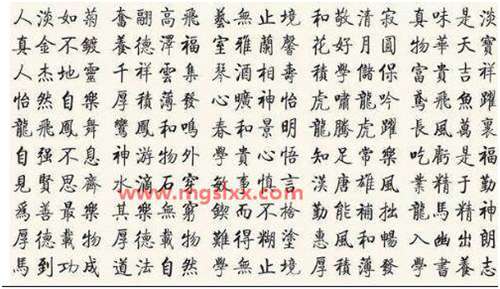 人淡如菊 奮翮高飛 藝無止境 和敬清寂 真味是淡
真金不鍍 養德澤福 室雅蘭馨 花好月圓 物華天寶
人杰地靈 千祥雲集 琴酒相壽 積學儲保 富貴吉祥
怡然自樂 厚積薄發 心曠神怡 虎嘯龍吟 鳶飛魚躍
龍飛鳳舞 鸞鳳和鳴 春和景明 龍騰虎躍 長風萬裏
自强不息 神游物外 學貴心悟 知足常樂 吃虧是福
見賢思齊 水滴石穿 敏事慎言 漢唐雄風 業精于勤
www.mgslxx.com
為善最樂 其樂無窮 鍥而不捨 勤能補拙 龍馬精神
厚德載物 厚德載物 難得糊塗 惠風和暢 入幽出朗
馬到功成 道法自然 學無止境 厚積薄發 學書養志